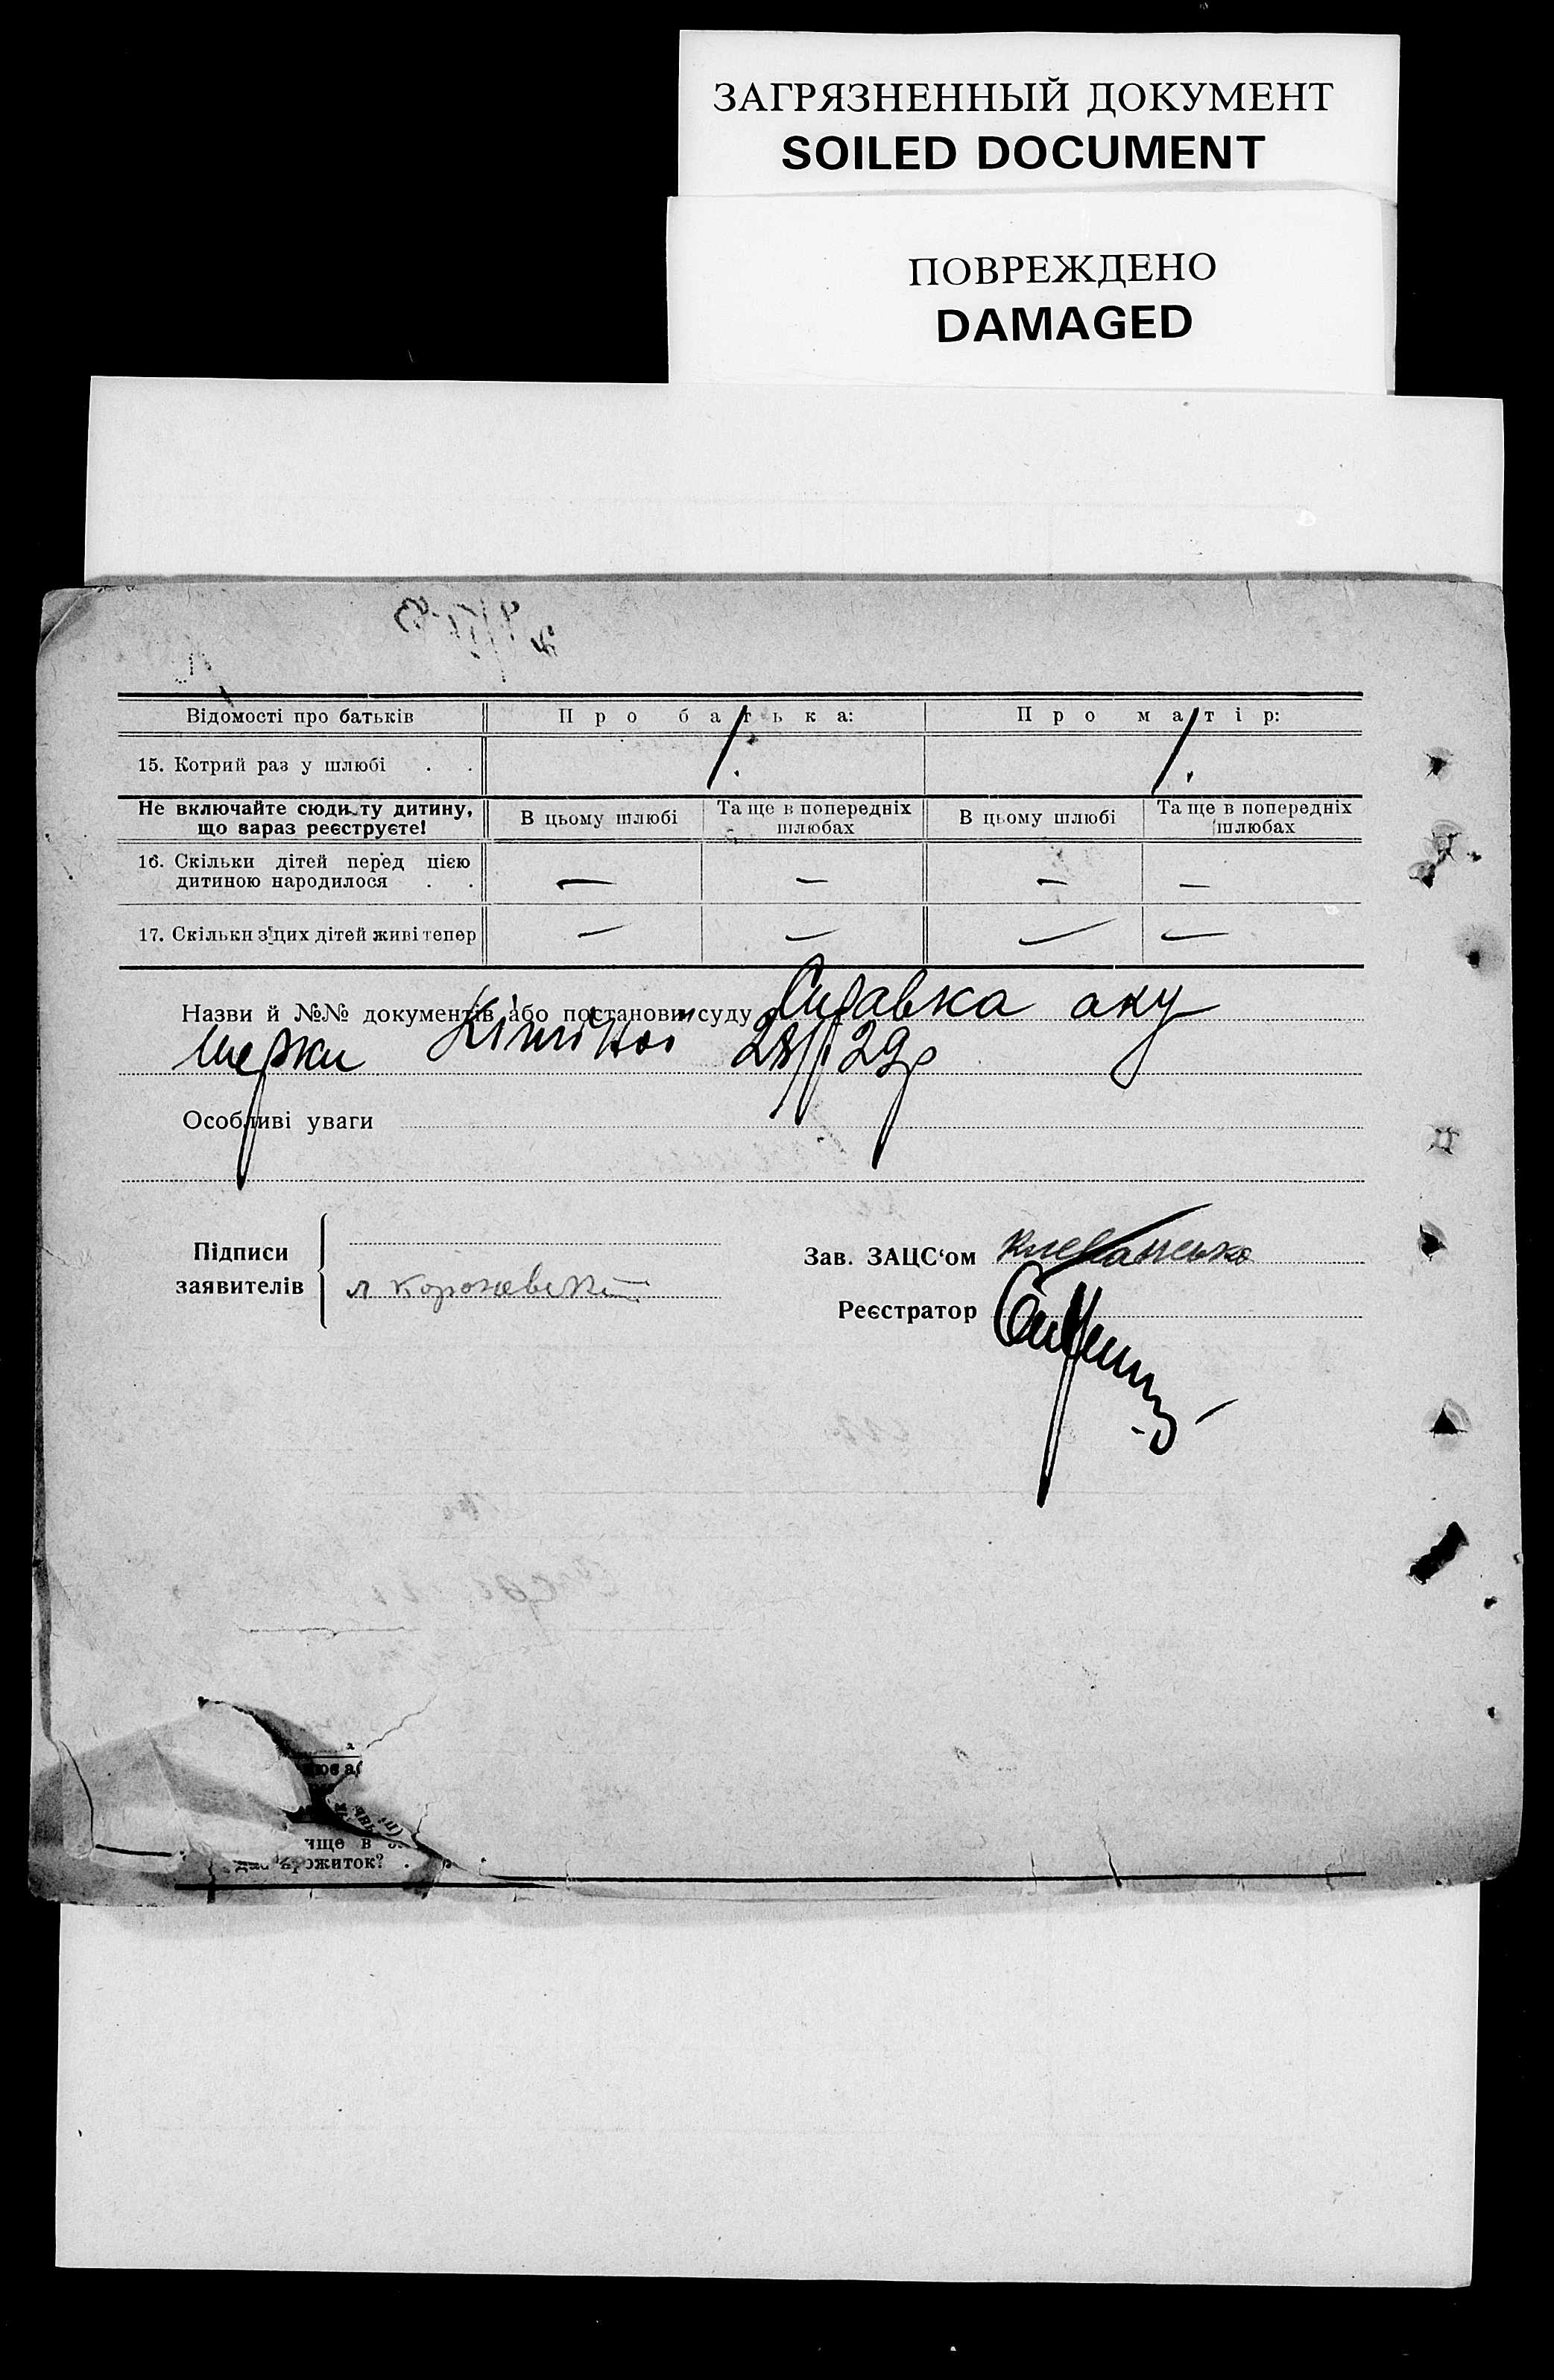 ЗАГРЯЗНЕННЫЙ ДОКУМЕНТ
SOILED DOCUMENT
ПОВРЕЖДЕНО
DAMAGED
Відомості про батьків Про батька: Про матір:
15. Котрий раз у шлюбі . . 1. 1.
Не включайте сюди ту дитину, що зараз реєструєте! В цьому шлюбі Та ще в попередніх шлюбах В цьому шлюбі Та ще в попередніх шлюбах
16. Скільки дітей перед цією дитиною народилося . . — — — —
17. Скільки з цих дітей живі тепер — — — —
Назви й №№ документів або постанови суду Справка аку
шерки 29р
Особливі уваги
Підписи заявителів
Зав. ЗАЦС‘ом
Реєстратор
ище в
ожиток?